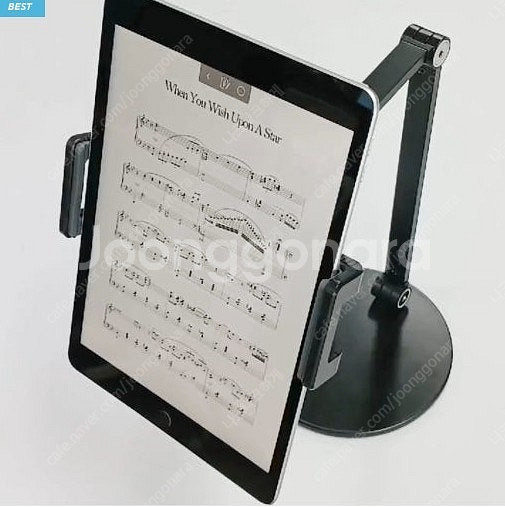 BEST
When You Wish Upon A Star
Joonggonara
cafe.naver.com/joonggonara